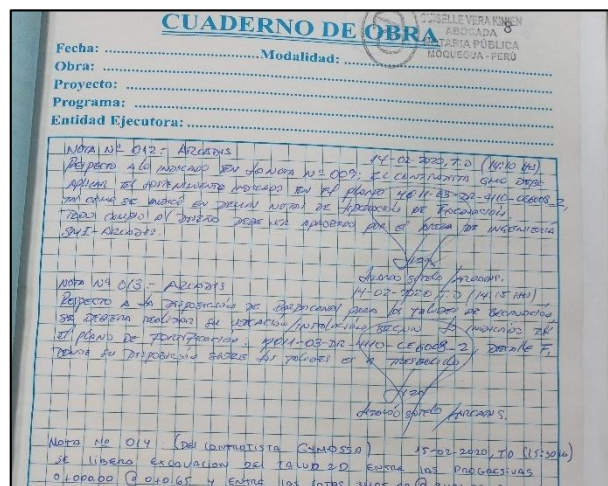 CUADERNO DE OBRA
GISELLE VERA KIHIEN
ABOGADA
NOTARIA PÚBLICA
MOQUEGUA - PERÚ
8
Fecha: Modalidad:
Obra:
Proyecto:
Programa:
Entidad Ejecutora:
NOTA Nº 012.- ARCADIS
14-02-2020, T.D (14:10 HS)
RESPECTO A LO INDICADO EN LA NOTA Nº 009; EL CONTRATISTA GMO DEBE
APLICAR EL SOSTENIMIENTO INDICADO EN EL PLANO 4011-03-DR-4110-CE6008_2,
TAL COMO SE INDICÓ EN NOTAS DE EXCAVACIÓN.
TODO CAMBIO AL DISEÑO DEBE SER APROBADO POR EL AREA DE INGENIERIA
SMI-ARCADIS.
ARCADIS.
NOTA Nº 013.- ARCADIS
14-02-2020 T.D (14:15 HS)
RESPECTO A LA DISPOSICION DE PARA LOS TALUDES DE EXCAVACION,
SE DEBERA REALIZAR SU INSTALACION SEGUN LO INDICADO EN
EL PLANO DE FORTIFICACION: 4011-03-DR-4110-CE6008-2, DETALLE F,
DONDE SU DISPOSICION SOBRE LOS TALUDES ES A TRESBOLILLO.
ARCADIS.
NOTA No 014 (DEL CONTRATISTA GYMOSSA) 15-02-2020, TD (15:30)
SE LIBERA EXCAVACION DEL TALUD 2D ENTRE LAS PROGRESIVAS
0+000.00 @ 0+0.65 Y ENTRE LAS COTAS